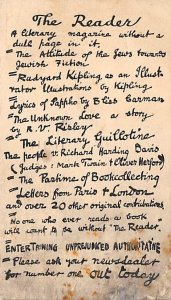 The Reader
A literary magazine without a
dull page in it.
The Attitude of the Jews towards
Jewish Fiction
Rudyard Kipling as an Illust-
rator Illustrations by Kipling
Lyrics of Sappho by Bliss Carman
The Unknown Love a story
by R. V. Risley
The Literary Guillotine
The people v Richard Harding Davis
(Judges: Mark Twain & Oliver Herford)
The Pastime of Bookcollecting
Letters from Paris & London
and over 20 other original contributions
No one who ever reads a book
will want to be without The Reader.
ENTERTAINING UNPREJUDICED AUTHORITATIVE
Please ask your newsdealer
for number one out today